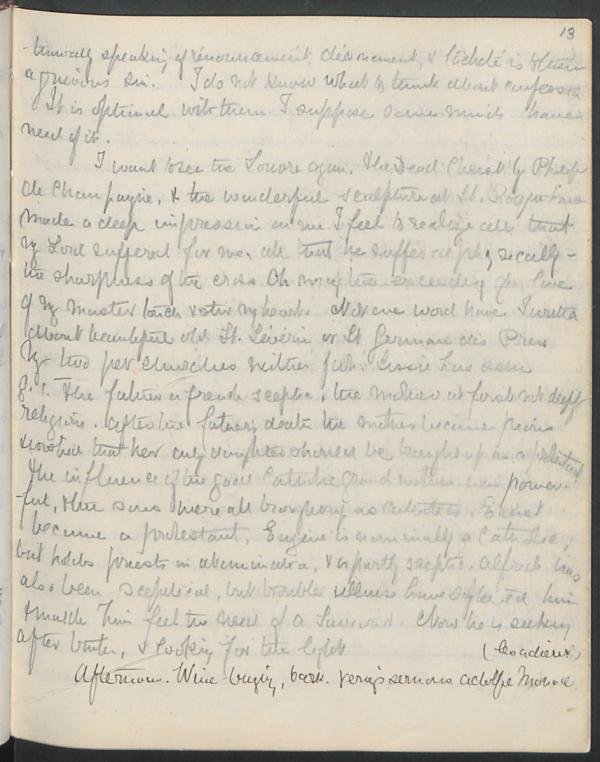 13
speaking, of renouncement, & lâcheté is to them
a grievous sin. I do not know what to think about confession
It is optional with them I suppose some minds have
need of it.
I want to see the Louvre again, the Dead Christ by Philip
de Champagne, & the wonderful sculpture at St.
made a deep impression on me. I feel to realize all that
my Lord suffered for me, all that he suffered physically -
the sharpness of the cross. Oh may the exceeding love
of my master touch & stir my heart. Not one word have I written
about beautiful old St. Séverin or St Germain des Près
My two pet churches
The father a french sceptic, the mother at first not deeply
religious. After the father's death the mother became pious
& wished that her only daughter should be brought up as a protestant
The influence of the good Catholic grandmother was power-
ful, & the sons were all brought up as catholics. Ernest
became a protestant, Eugène is nominally a Catholic,
but holds priests in abomination, & is partly sceptic. Alfred has
also been sceptical, but troubles & illness have softened him
& made him feel the need of a Saviour. Now he is seeking
after truth, & looking for the light
Afternoon. Wine buying, bark. sermons Adolfe Monod.